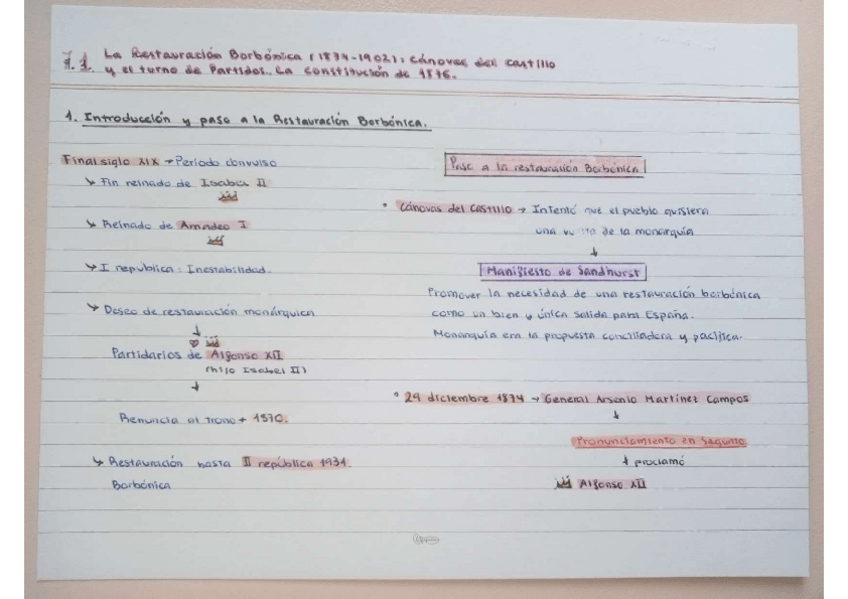 7.1. La Restauración Borbónica (1874-1902): Cánovas del Castillo
y el turno de Partidos. La constitución de 1876.
1. Introducción y paso a la Restauración Borbónica.
Final siglo XIX → Período convulso
↳ Fin reinado de Isabel II
↳ Reinado de Amadeo I
↳ I república: Inestabilidad.
↳ Deseo de restauración monárquica
↓
Partidarios de Alfonso XII
(hijo Isabel II)
↓
Renuncia al trono → 1870.
↳ Restauración hasta II república 1931.
Borbónica
Paso a la restauración Borbónica
• Cánovas del Castillo → Intentó que el pueblo quisiera
una de la monarquía
↓
Manifiesto de Sandhurst
Promover la necesidad de una restauración borbónica
como un bien y única salida para España.
Monarquía era la propuesta conciliadora y pacífica.
• 29 diciembre 1874 → General Arsenio Martínez Campos
↓
Pronunciamiento en Sagunto
↓ proclamó
Alfonso XII